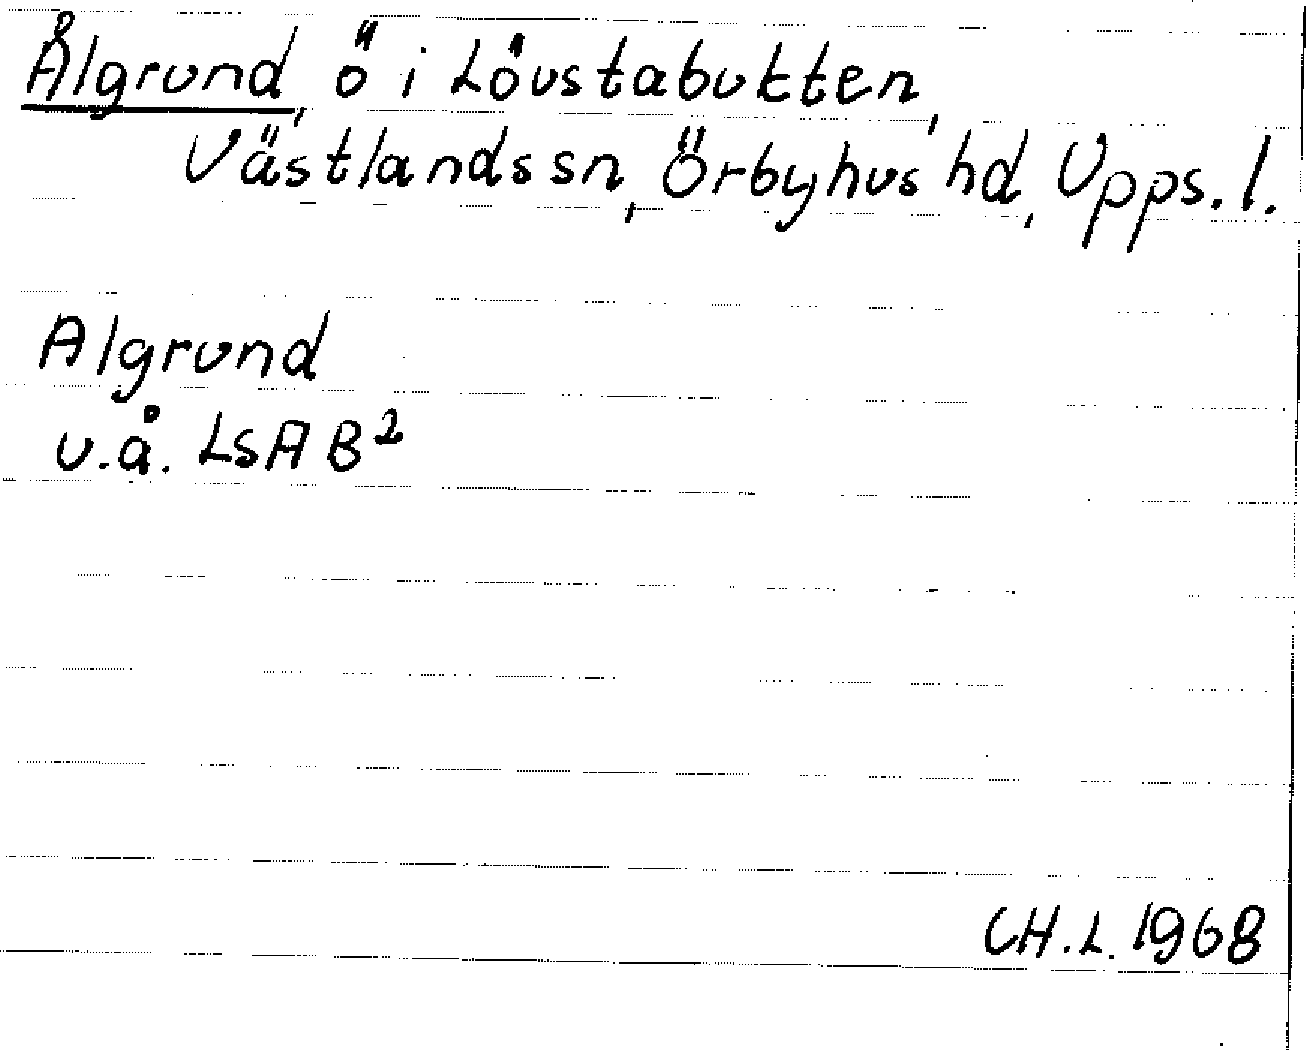 Ålgrund, ö i Lövstabukten,
Västlands sn, Örbyhus hd, Upps. l.
Algrund
u.å. LSA B²
CH.L. 1968